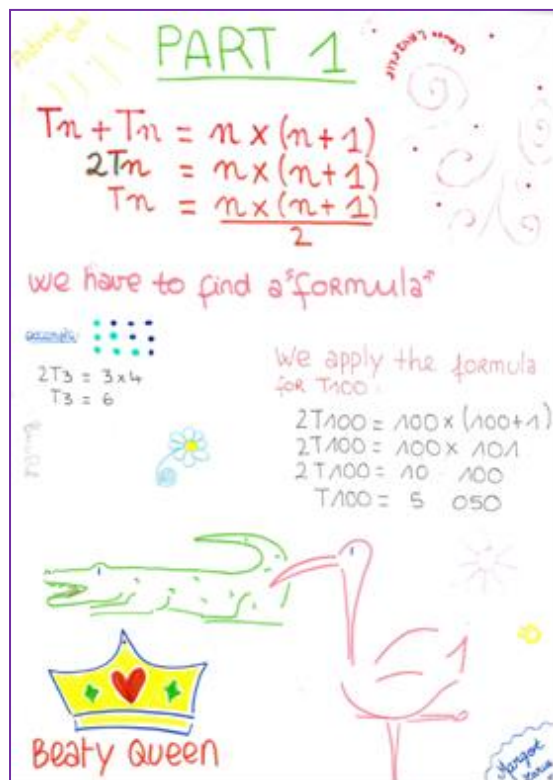 PART 1
Tn + Tn = n x (n + 1)
2Tn = n x (n + 1)
Tn = n x (n + 1)
2
We have to find a "formula"
example:
2T3 = 3x4
T3 = 6
We apply the formula
for T100:
2T100 = 100 x (100+1)
2T100 = 100 x 101
2T100 = 10 100
T100 = 5 050
Beaty Queen
Margot